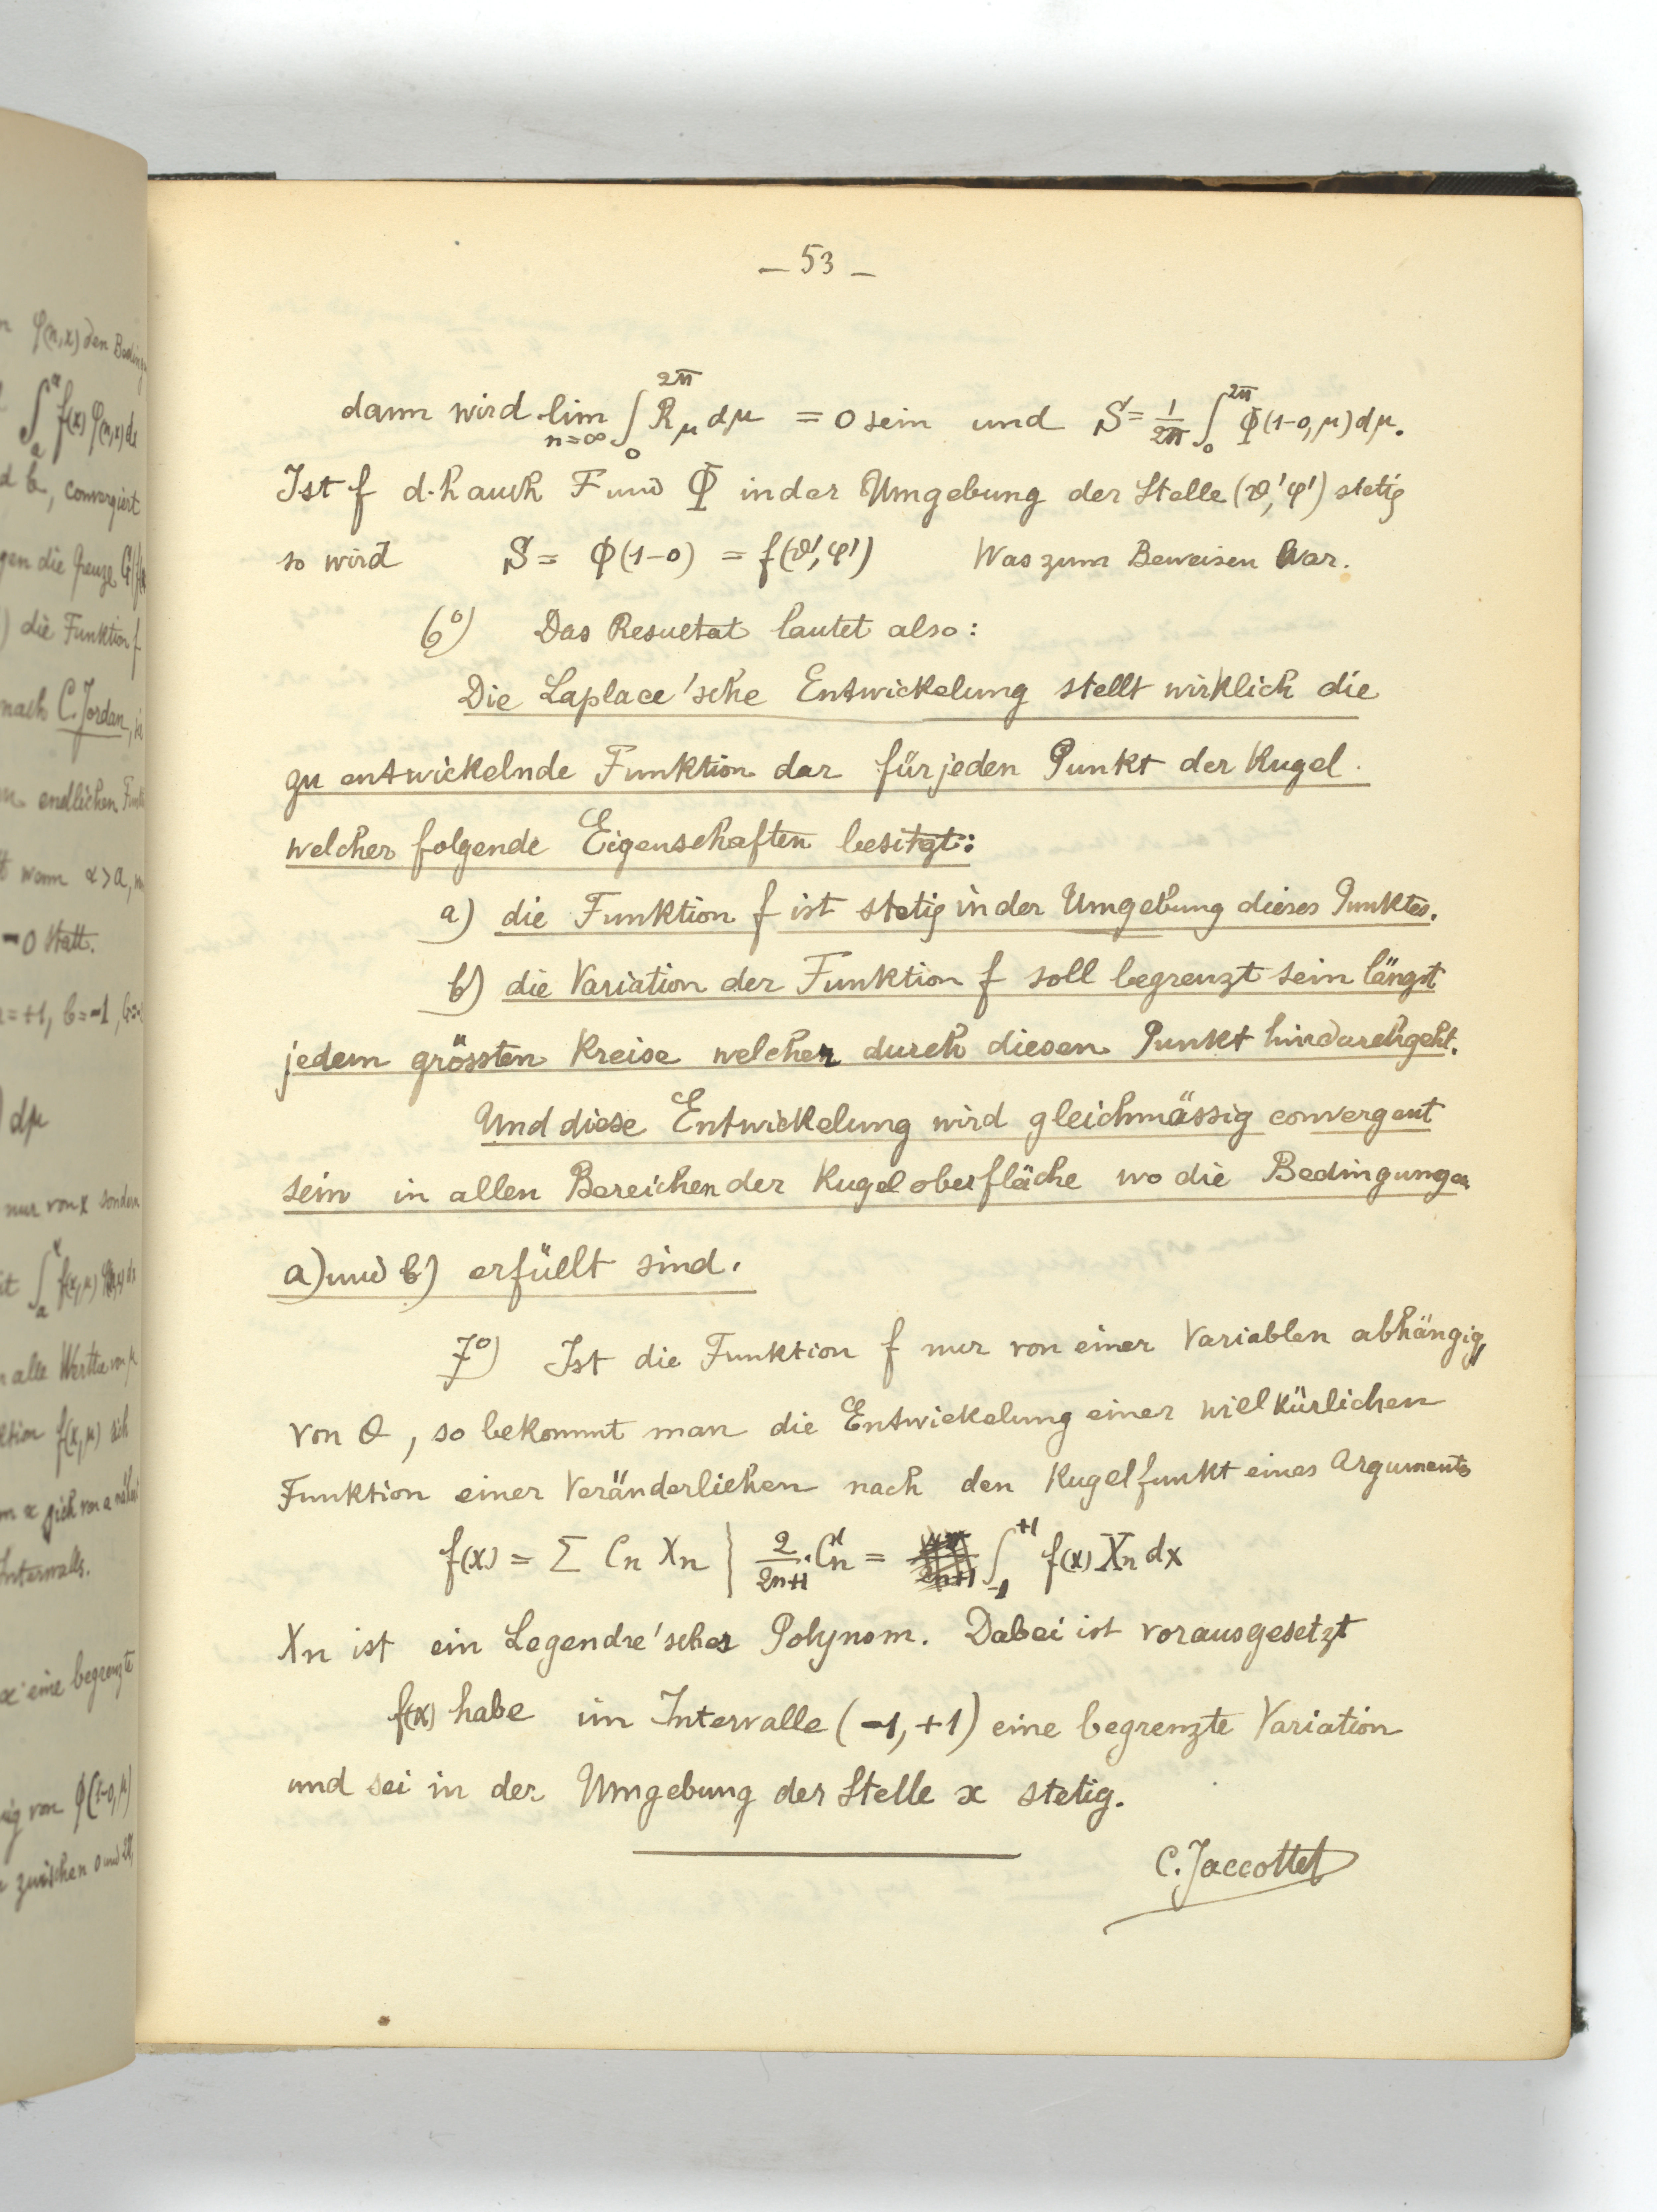 — 53 —
dann wird lim n=∞ ∫₀^2π R_μ dμ = 0 sein und S = 1/2π ∫₀^2π Φ(1-0, μ) dμ.
Ist f d.h auch F und Φ in der Umgebung der Stelle (ϑ', φ') stetig
so wird S = Φ(1-0) = f(ϑ', φ') Was zum Beweisen war.
6°) Das Resultat lautet also:
Die Laplace'sche Entwickelung stellt wirklich die
zu entwickelnde Funktion dar für jeden Punkt der Kugel.
welcher folgende Eigenschaften besitzt:
a) die Funktion f ist stetig in der Umgebung dieses Punktes.
b) die Variation der Funktion f soll begrenzt sein längst
jedem grössten Kreise welcher durch diesen Punkt hindurchgeht.
Und diese Entwickelung wird gleichmässig convergent
sein in allen Bereichen der Kugeloberfläche wo die Bedingungen
a) und b) erfüllt sind.
7°) Ist die Funktion f nur von einer Variablen abhängig,
von θ, so bekommt man die Entwickelung einer willkürlichen
Funktion einer Veränderlichen nach den Kugelfunkt eines Arguments
f(x) = Σ Cn Xn | 2/2n+1 . Cn = ∫₋₁^+1 f(x) Xn dx
Xn ist ein Legendre'sches Polynom. Dabei ist vorausgesetzt
f(x) habe im Intervalle (-1, +1) eine begrenzte Variation
und sei in der Umgebung der Stelle x stetig.
C. Jaccottet
φ(n,x) den
∫ f(x) φ(n,x) dx
b, convergiert
die Grenze
) die Funktion f
nach C. Jordan,
endlichen
wenn α > a,
-0 statt.
= +1, b = -1,
) dμ
nur von x sondern
∫ f(x,μ)
alle Werthe von μ
f(x,μ) sich
x sich von a
Intervalls.
eine begrenzte
von φ(1-0, μ)
zwischen 0 und 2π,